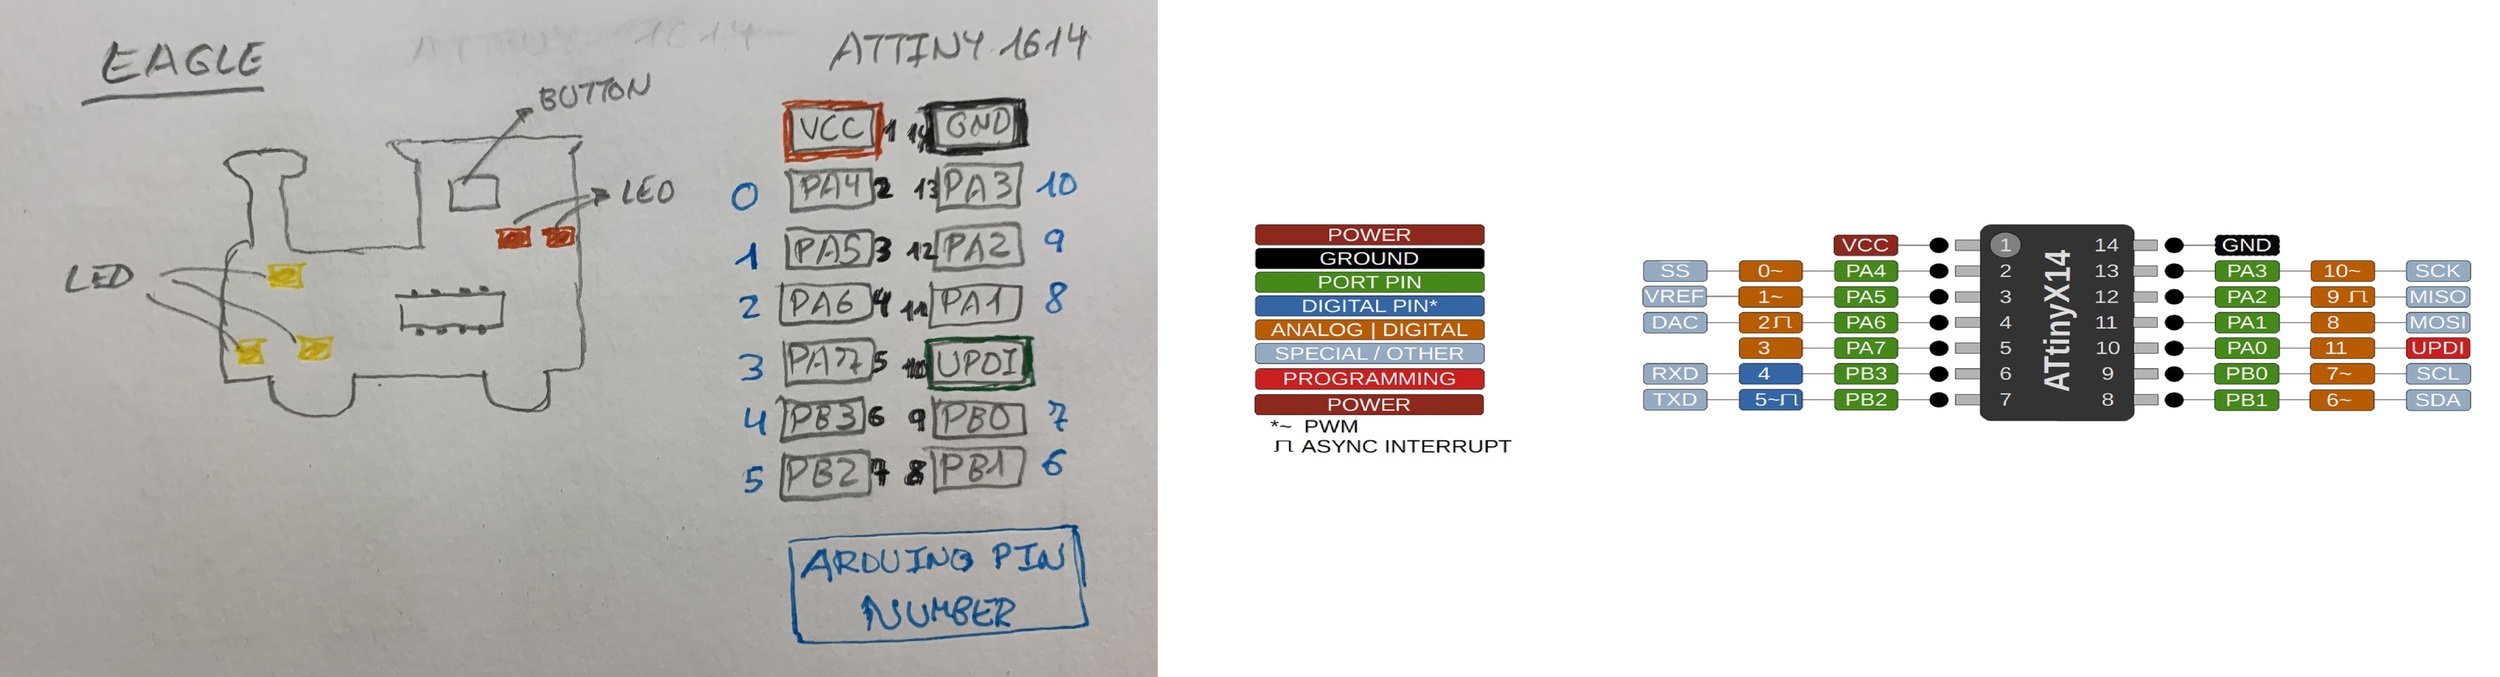 EAGLE
ATTINY 1614
BUTTON
LED
LED
VCC 1 14 GND
0 PA4 2 13 PA3 10
1 PA5 3 12 PA2 9
2 PA6 4 11 PA1 8
3 PA7 5 10 UPDI
4 PB3 6 9 PB0 7
5 PB2 7 8 PB1 6
ARDUINO PIN
NUMBER
POWER
GROUND
PORT PIN
DIGITAL PIN*
ANALOG | DIGITAL
SPECIAL / OTHER
PROGRAMMING
POWER
*~ PWM
ASYNC INTERRUPT
ATtinyX14
VCC 1 14 GND
SS 0~ PA4 2 13 PA3 10~ SCK
VREF 1~ PA5 3 12 PA2 9 MISO
DAC 2 PA6 4 11 PA1 8 MOSI
3 PA7 5 10 PA0 11 UPDI
RXD 4 PB3 6 9 PB0 7~ SCL
TXD 5~ PB2 7 8 PB1 6~ SDA